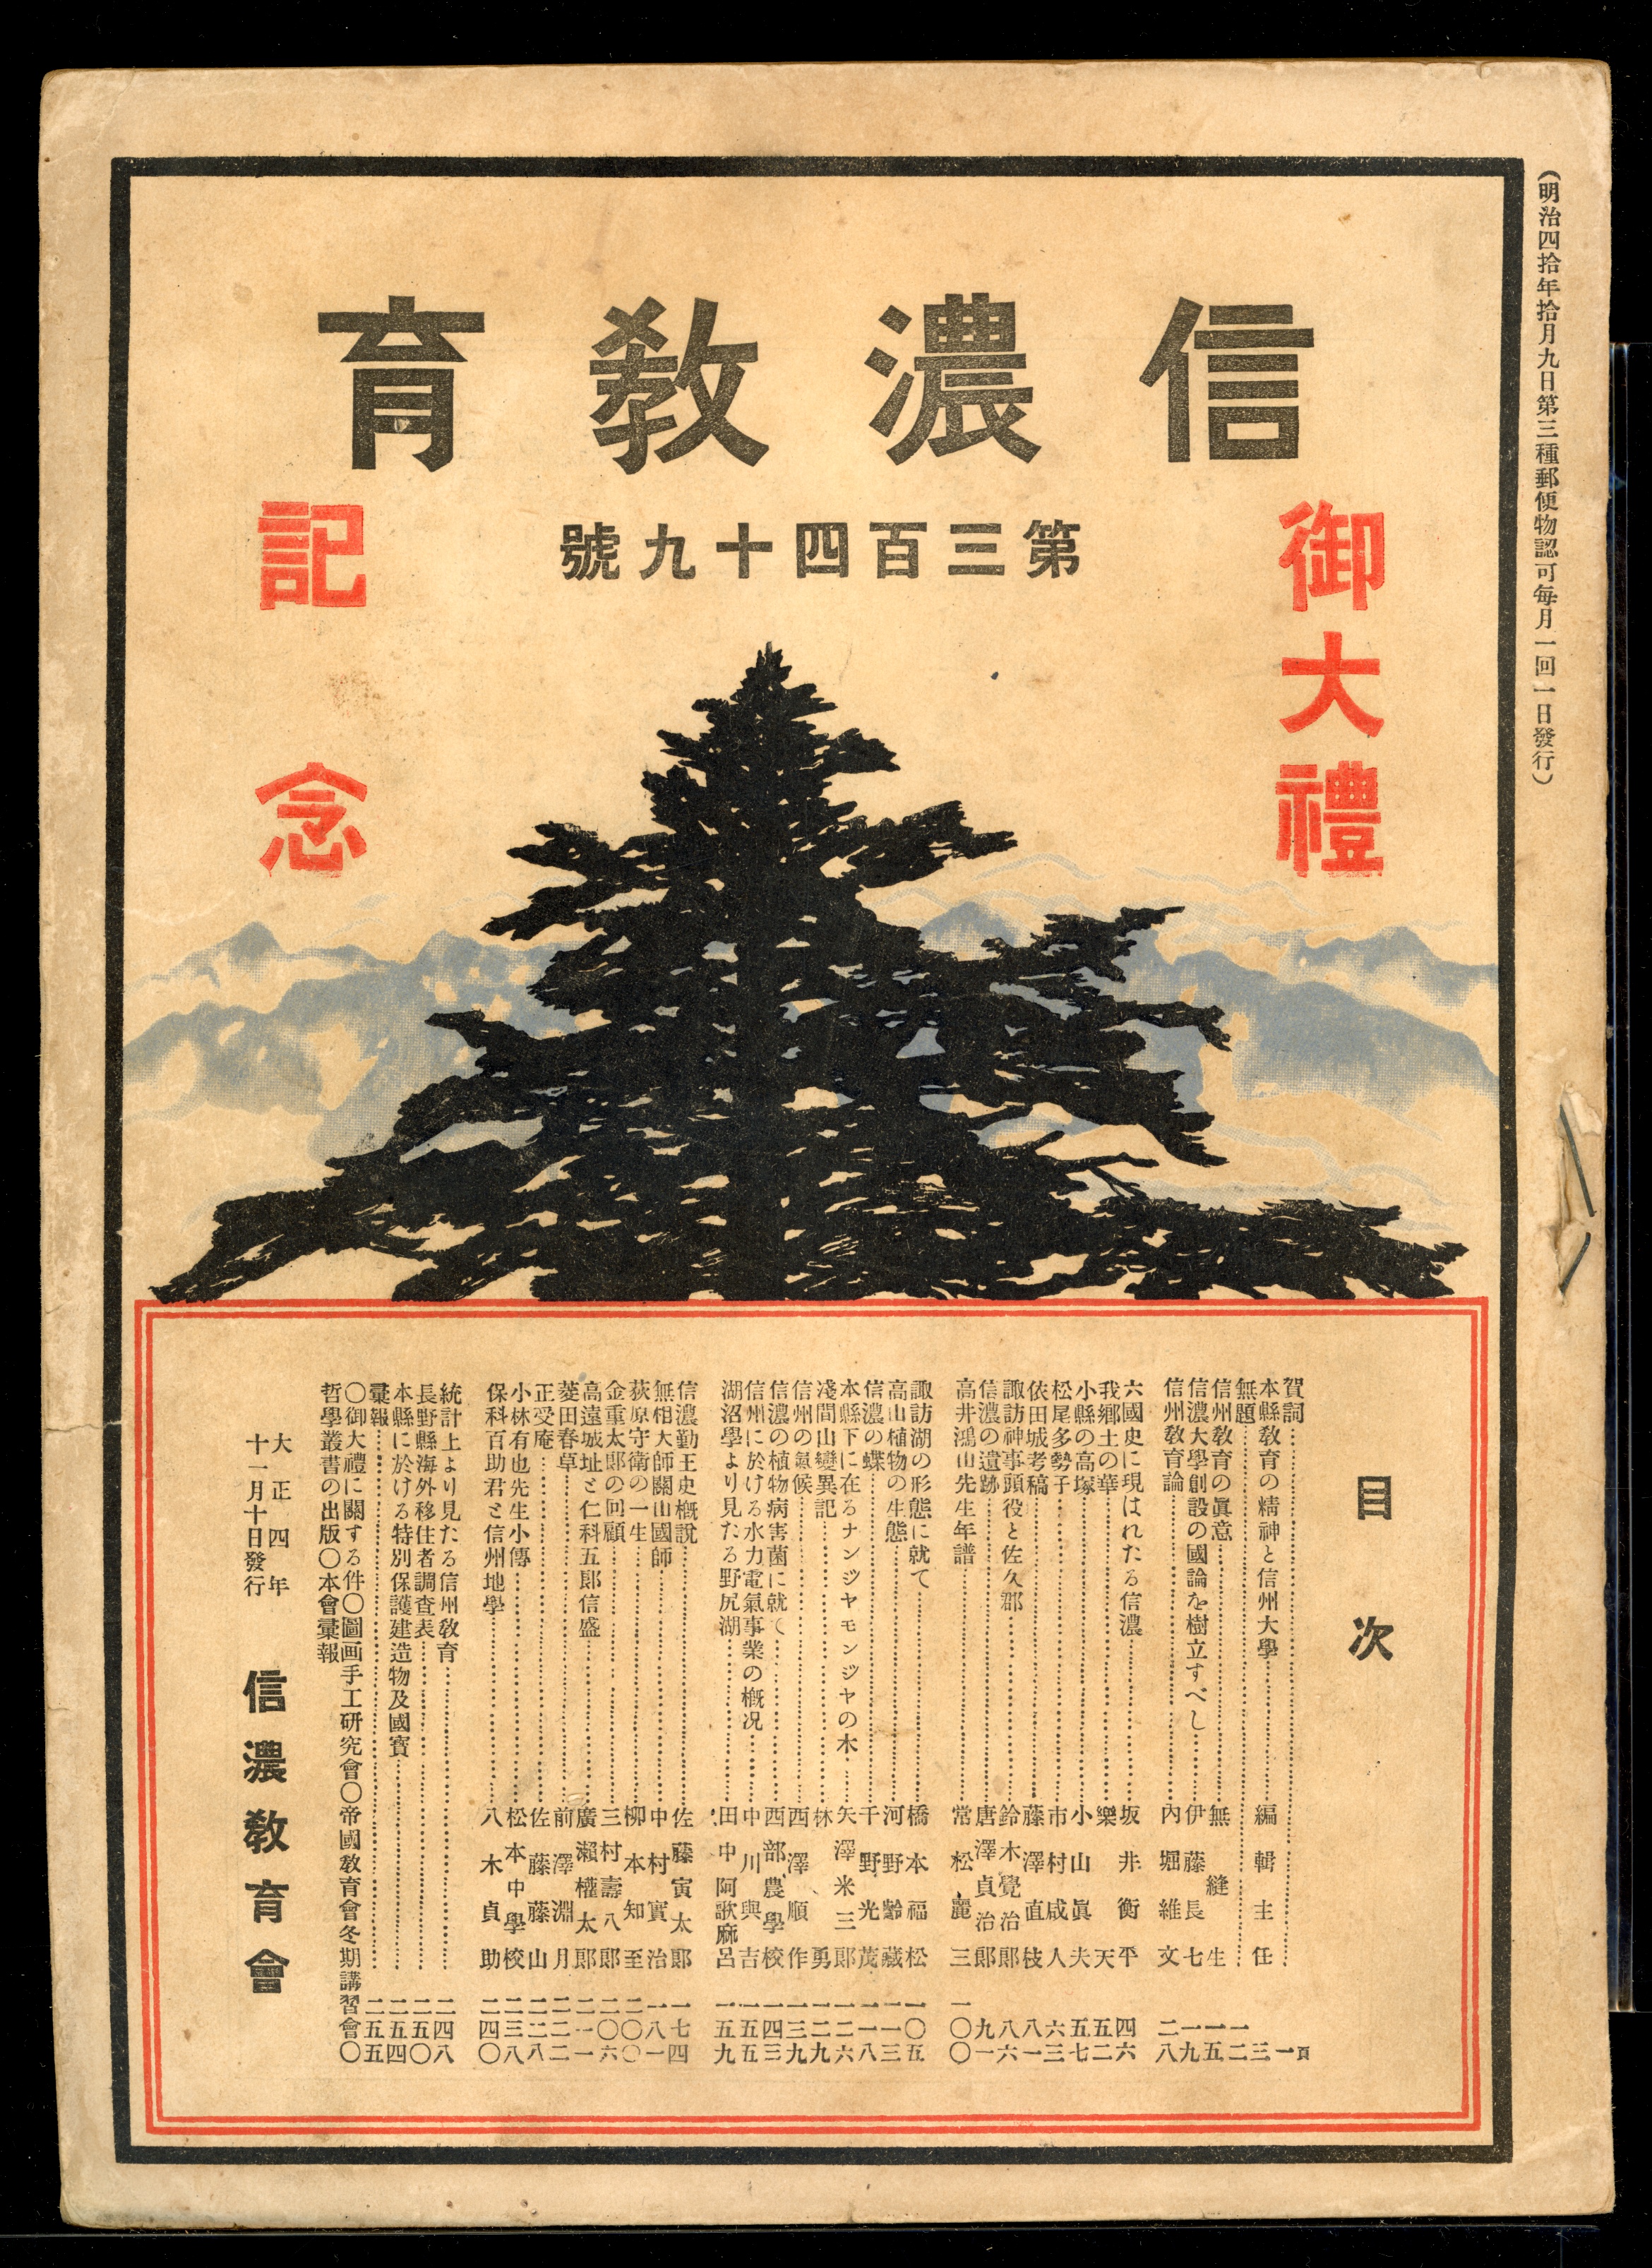 (明治四拾年拾月九日第三種郵便物認可每月一回一日發行)
信濃敎育
第三百四十九號
御大禮
記念
目次
賀詞……一頁
本縣敎育の精神と信州大學……編輯主任……三
無題……一二
信州敎育の眞意……無縫生……一五
信濃大學創設の國論を樹立すべし……伊藤長七……一九
信州敎育論……內堀維文……二八
六國史に現はれたる信濃……坂井衡平……四六
我鄕土の華……樂天……五二
小縣の高塚……小山眞夫……五七
松尾多勢子……市村咸人……六三
依田城考稿……藤澤直枝……八一
諏訪神事頭役と佐久郡……鈴木覺治郎……八六
信濃の遺跡……唐澤貞治郎……九一
高井鴻山先生年譜……常松麗三……一〇〇
諏訪湖の形態に就て……橋本福松……一〇五
高山植物の生態……河野齡藏……一一三
信濃の蝶……千野光茂……一一八
本縣下に在るナンジヤモンジヤの木……矢澤米三郎……一二六
淺間山變異記……林勇……一二九
信州の氣候……西澤順作……一三九
信濃の植物病害菌に就て……西部農學校……一四三
信州に於ける水力電氣事業の槪況……中川與吉……一五五
湖沼學より見たる野尻湖……田中阿歌麻呂……一五九
信濃勤王史槪說……佐藤寅太郎……一七四
無相大師關山國師……中村實治……一八一
荻原守衛の一生……柳本知至……二〇〇
金重太郎の回顧……三村壽八郎……二〇六
高遠城址と仁科五郎信盛……廣瀨權太郎……二一一
菱田春草……前澤淵月……二二二
正受庵……佐藤藤山……二二八
小林有也先生小傳……松本中學校……二三八
保科百助君と信州地學……八木貞助……二四〇
統計上より見たる信州敎育……二四八
長野縣海外移住者調査表……二五〇
本縣に於ける特別保護建造物及國寶……二五四
彙報……二五五
〇御大禮に關する件〇圖画手工研究會〇帝國敎育會冬期講習會〇
哲學叢書の出版〇本會彙報
大正四年
十一月十日發行
信濃敎育會